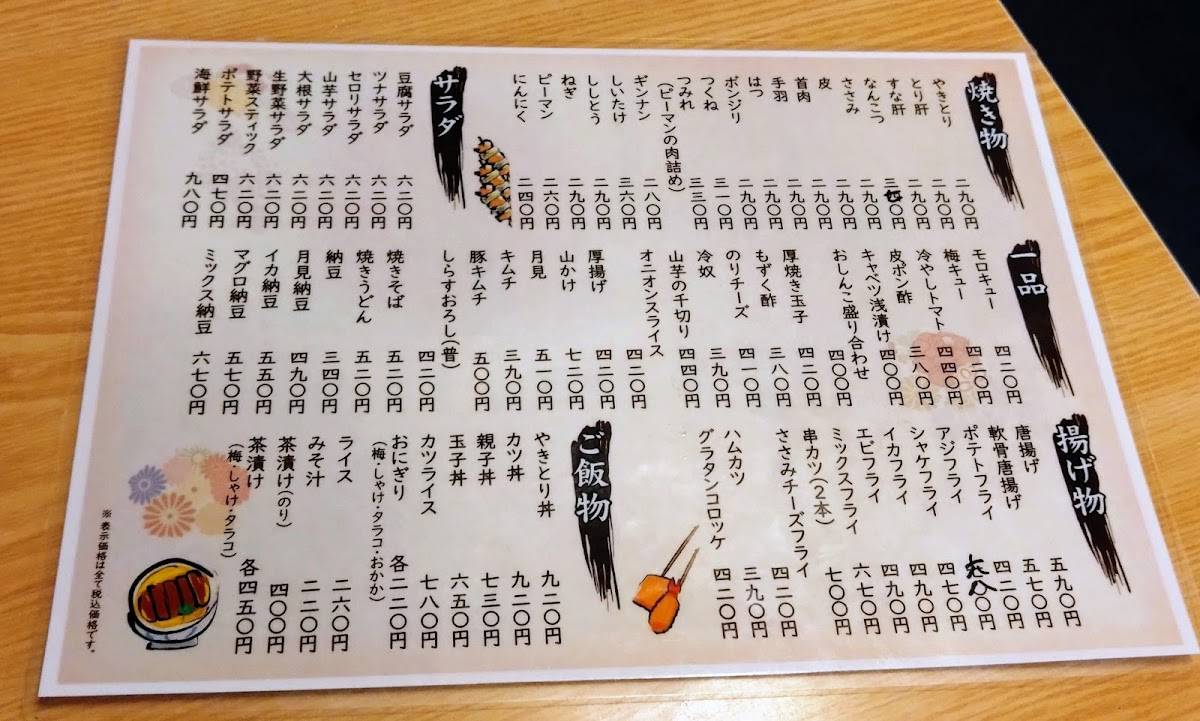 焼き物
やきとり 二九〇円
とり肝 二九〇円
すな肝 二九〇円
なんこつ 三 〇円
ささみ 二九〇円
皮 二九〇円
首肉 二九〇円
手羽 二九〇円
はつ 二九〇円
ボンジリ 二九〇円
つくね 三一〇円
つみれ 三三〇円
(ピーマンの肉詰め)
ギンナン 二八〇円
しいたけ 三六〇円
ししとう 二九〇円
ねぎ 二九〇円
ピーマン 二六〇円
にんにく 二四〇円
サラダ
豆腐サラダ 六二〇円
ツナサラダ 六二〇円
セロリサラダ 六二〇円
山芋サラダ 六二〇円
大根サラダ 六二〇円
生野菜サラダ 六二〇円
野菜スティック 六二〇円
ポテトサラダ 四七〇円
海鮮サラダ 九八〇円
一品
モロキュー 四二〇円
梅キュー 四二〇円
冷やしトマト 四四〇円
皮ポン酢 三八〇円
キャベツ浅漬け 四〇〇円
おしんこ盛り合わせ 四〇〇円
厚焼き玉子 四二〇円
もずく酢 三八〇円
のりチーズ 四一〇円
冷奴 三九〇円
山芋の千切り 四四〇円
オニオンスライス 四二〇円
厚揚げ 四二〇円
山かけ 七二〇円
月見 五一〇円
キムチ 三九〇円
豚キムチ 五〇〇円
しらすおろし(普) 四二〇円
焼きそば 五二〇円
焼きうどん 五二〇円
納豆 三四〇円
月見納豆 四九〇円
イカ納豆 五五〇円
マグロ納豆 五七〇円
ミックス納豆 六七〇円
揚げ物
唐揚げ 五九〇円
軟骨唐揚げ 五七〇円
ポテトフライ 四二〇円
アジフライ 〇円
シャケフライ 四七〇円
イカフライ 四九〇円
エビフライ 四九〇円
ミックスフライ 六七〇円
串カツ(2本) 七〇〇円
ささみチーズフライ 四二〇円
ハムカツ 三九〇円
グラタンコロッケ 四二〇円
ご飯物
やきとり丼 九二〇円
カツ丼 九二〇円
親子丼 七三〇円
玉子丼 六五〇円
カツライス 七八〇円
おにぎり 各二二〇円
(梅・しゃけ・タラコ・おかか)
ライス 二六〇円
みそ汁 二二〇円
茶漬け(のり) 四〇〇円
茶漬け 各四五〇円
(梅・しゃけ・タラコ)
※表示価格は全て税込価格です。